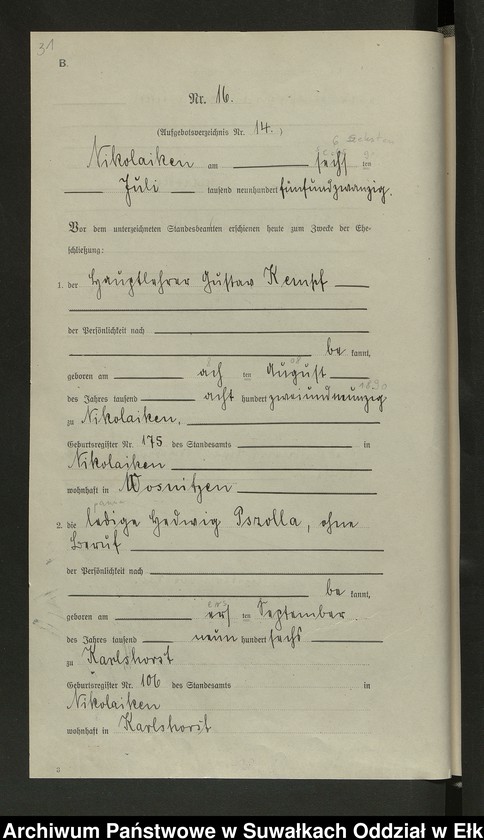 31
B.
Nr. 16.
(Aufgebotsverzeichnis Nr. 14.)
Nikolaiken am sechs ten
Juli tausend neunhundert fünfundzwanzig.
Vor dem unterzeichneten Standesbeamten erschienen heute zum Zwecke der Ehe-
schließung:
1. der Hauptlehrer Gustav Kempf
der Persönlichkeit nach
be kannt,
geboren am ach ten August
des Jahres tausend acht hundert zweiundneunzig
zu Nikolaiken,
Geburtsregister Nr. 175 des Standesamts in
Nikolaiken
wohnhaft in Wosnitzen
2. die ledige Hedwig Pszolla, ohne
Beruf
der Persönlichkeit nach
be kannt,
geboren am ers ten September
des Jahres tausend neun hundert sechs
zu Karlshorst
Geburtsregister Nr. 106 des Standesamts in
Nikolaiken
wohnhaft in Karlshorst
Archiwum Państwowe w Suwałkach Oddział w Ełku